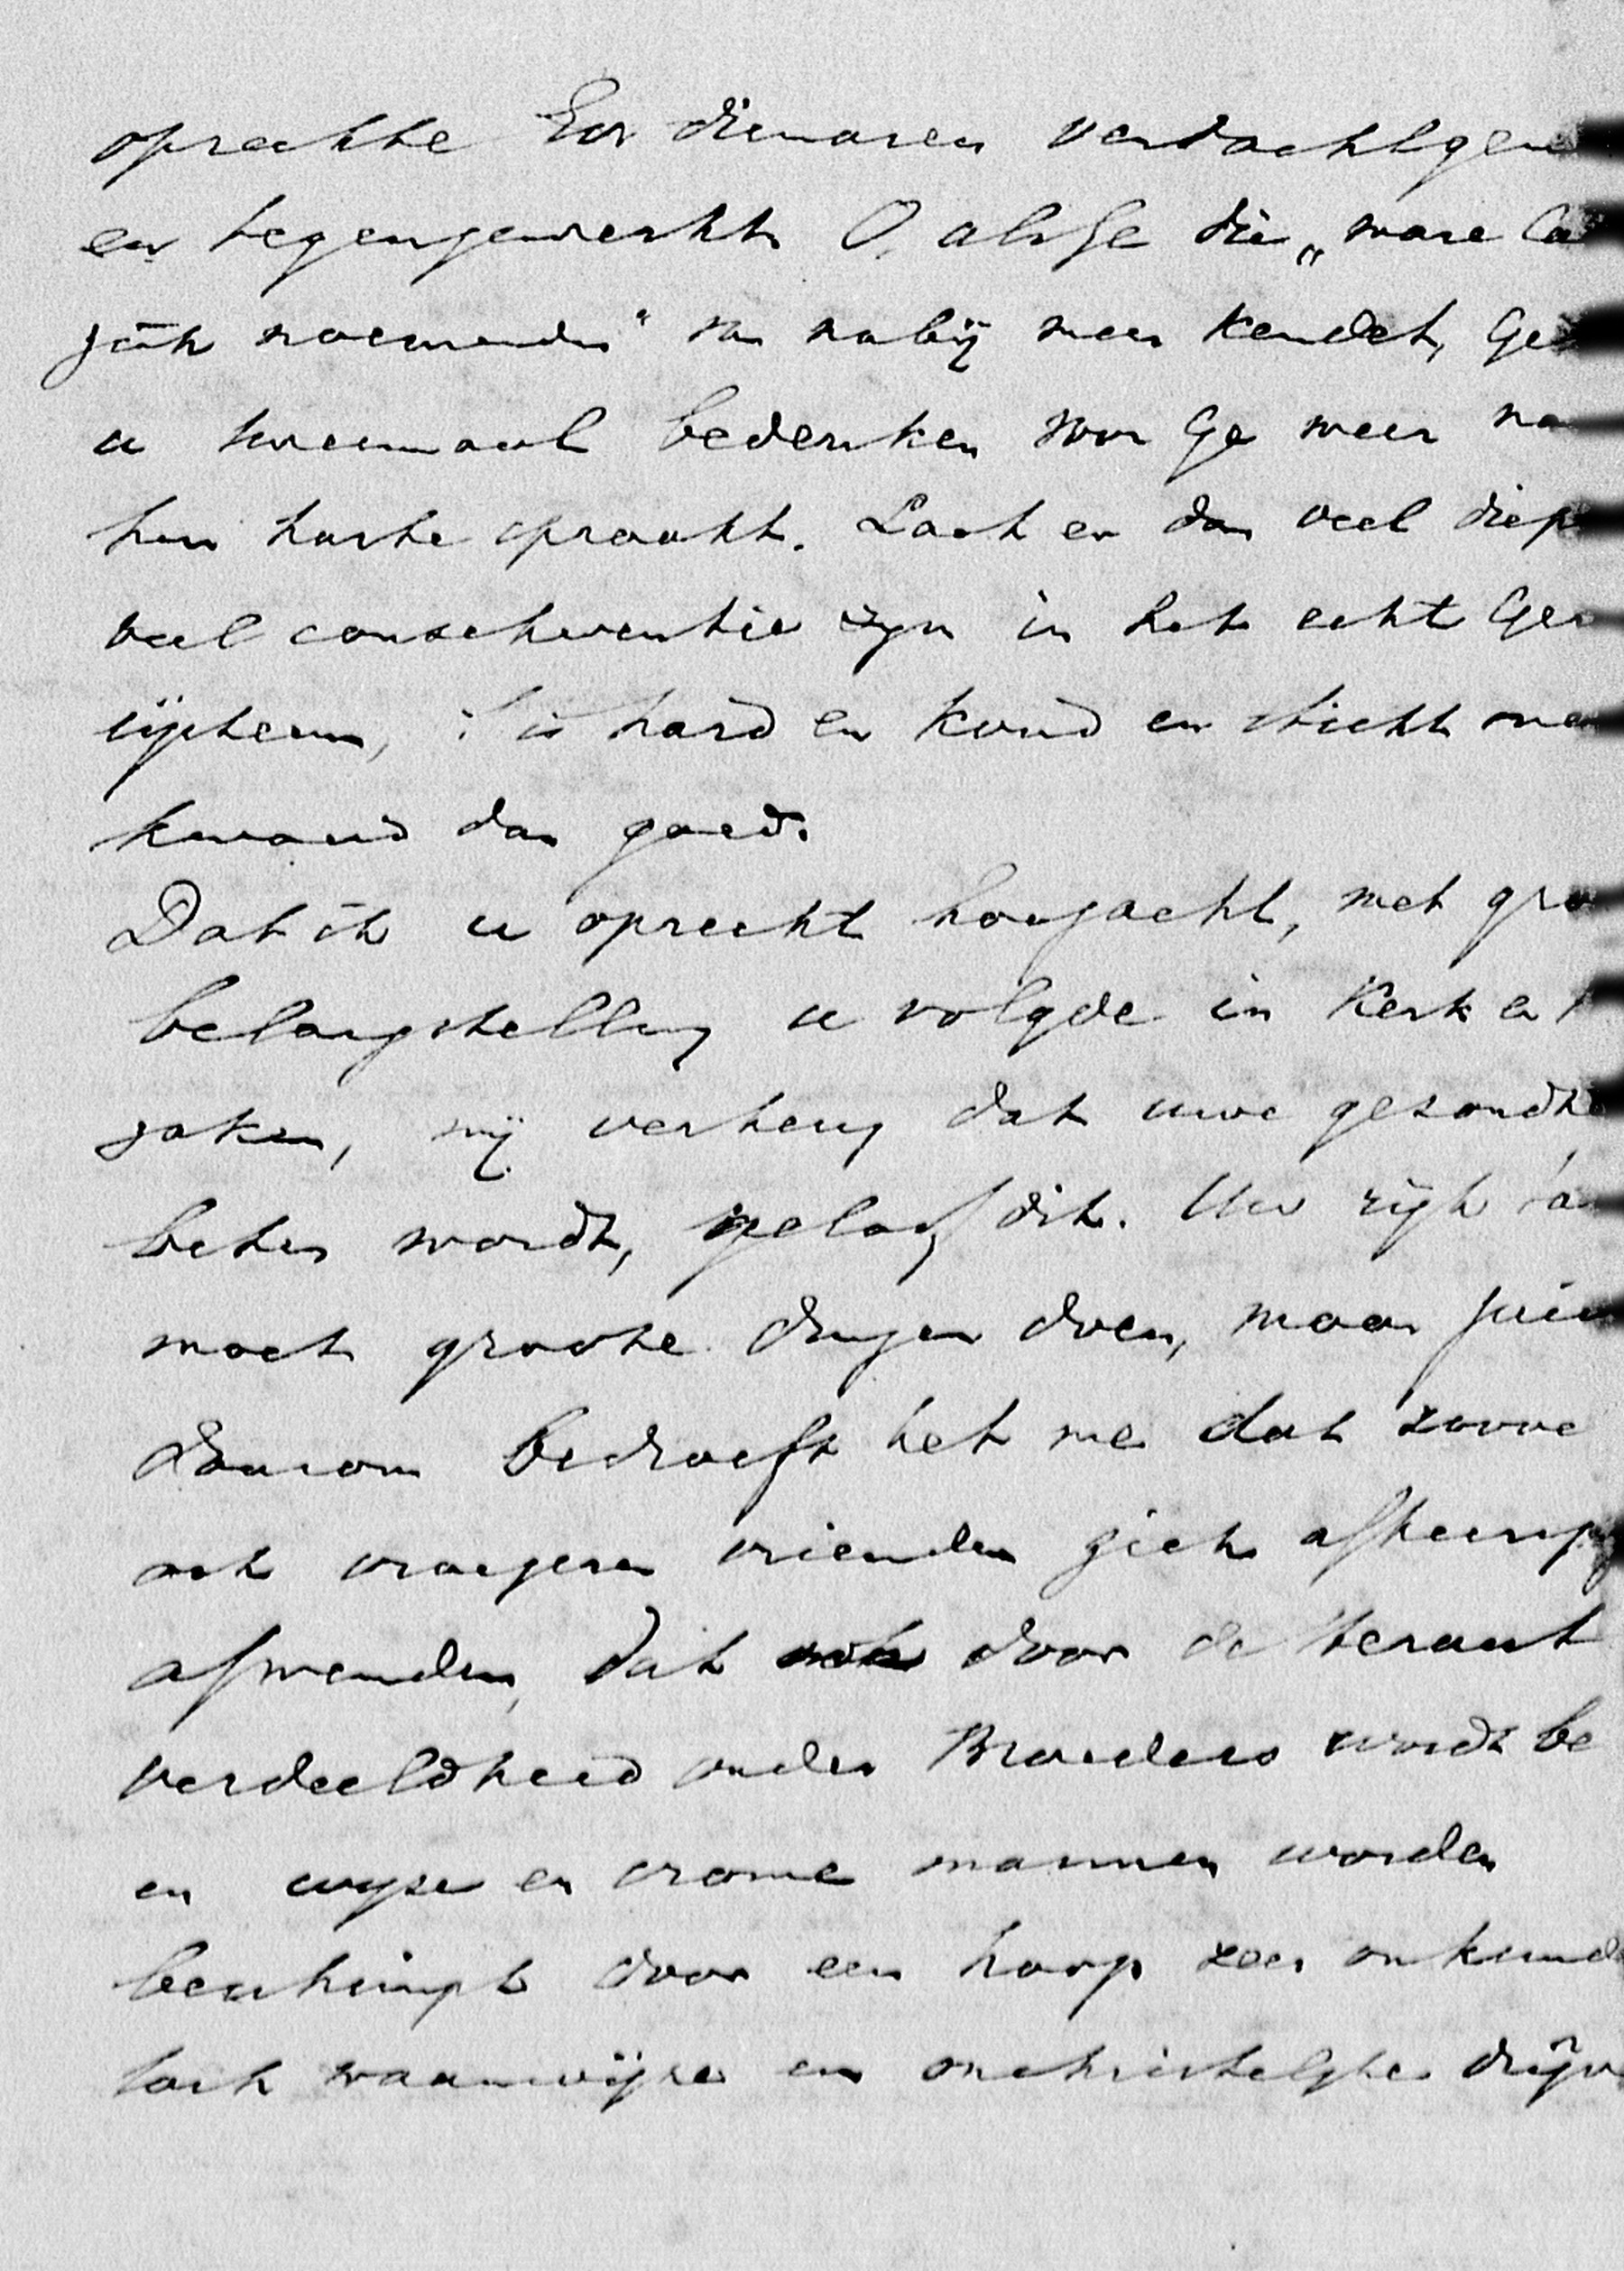 oprechte Ev. dienaren verdacht gem
en tegengewerkt. O, als Ge die „ware Ca
zich noemenden" van nabij meer kendet, Ge
u tweemaal bedenken voor Ge weer na
hun harte spraakt. Laat er dan veel diep
veel consekwentie zijn in het echt Ger
ijsteem, 't is hard en koud en sticht me
kwaad dan goed.
Dat ik u oprecht hoogacht, met gro
belangstelling u volgde in Kerk en
zaken, mij verheug dat uwe gezondh
beter wordt, geloof dit. Uw rijk
moet groote dingen doen, maar jui
daarom bedroeft het me dat zoove
ook vroegere vrienden zich afkeerig
afwenden, dat door de Heraut
verdeeldheid onder Broeders wordt be
en wijze en vrome mannen worden
beschimpt door een hoop zeer onkund
toch waanwijze en onchristelijke drijv